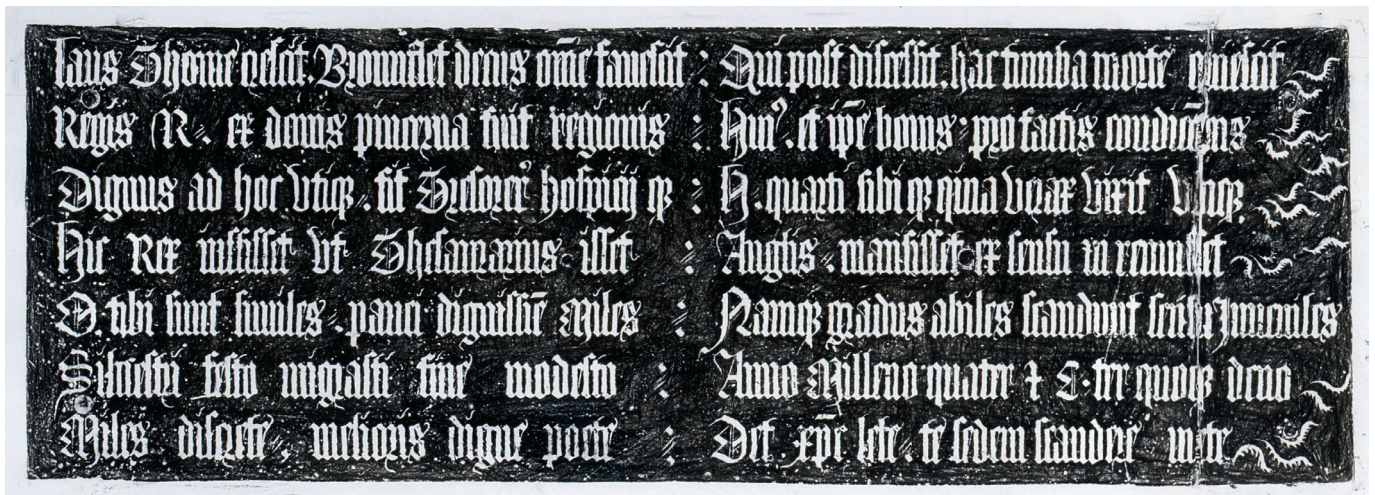 laus Thome nescit. Brounflet decus om̄e fauescit : Qui post discessit. hac tumba morte quiescit
Regis R. ex donis pincerna fuit regionis : Huiꝰ. et ip̄e bonus pro factis
Dignus ad hoc vtiqꝫ. fit hospicij qꝫ : H. quarti sibi qꝫ quina vixit Vtiqꝫ
Hic Rex iussisset vt Thesaurarius isset : Anglis. mansisset ex sensu
O. tibi sunt similes. pauci dignissīe Miles : Namqꝫ gradus abiles scandunt sensu Juueniles
Siluestri festo migrasti fine modesto : Anno Milleno quater ⁊ C. ter quoqꝫ deno
Miles discrete. melioris digne poete : Det xp̄e lete. te sedem scandere